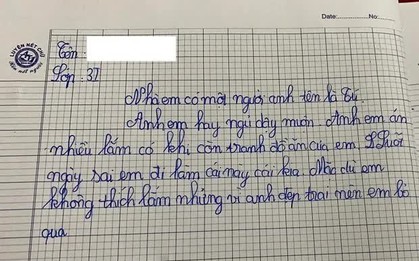 Date: No:
LUYỆN NÉT CHỮ
Tên :
Lớp : 3T
Nhà em có một người anh tên là Tú.
Anh em hay ngủ dậy muộn. Anh em ăn
nhiều lắm có khi còn tranh đồ ăn của em. Suốt
ngày sai em đi làm cái này cái kia. Mặc dù em
không thích lắm nhưng vì anh đẹp trai nên em bỏ
qua